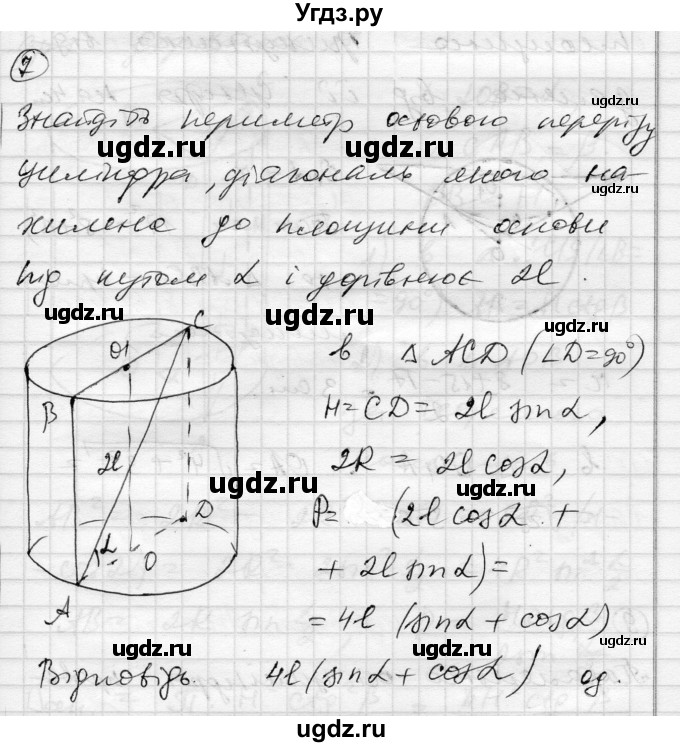 Угдз.ру
7
Знайдіть периметр осьового перерізу
циліндра, діагональ якого на-
хилена до площини основи
під кутом α і дорівнює 2l.
ugdz.ru ugdz.ru
ugdz.ru ugdz.ru
ugdz.ru ugdz.ru ugdz.ru
C
O1
B
2l
D
α O
A
в △ ACD (∠D=90°)
H=CD= 2l sinα,
2R = 2l cosα,
P= (2l cosα +
+ 2l sinα)=
=4l (sinα + cosα)
ugdz.ru ugdz.ru
ugdz.ru ugdz.ru
ugdz.ru ugdz.ru
Відповідь. 4l(sinα + cosα) од.
ugdz.ru ugdz.ru
ugdz.ru